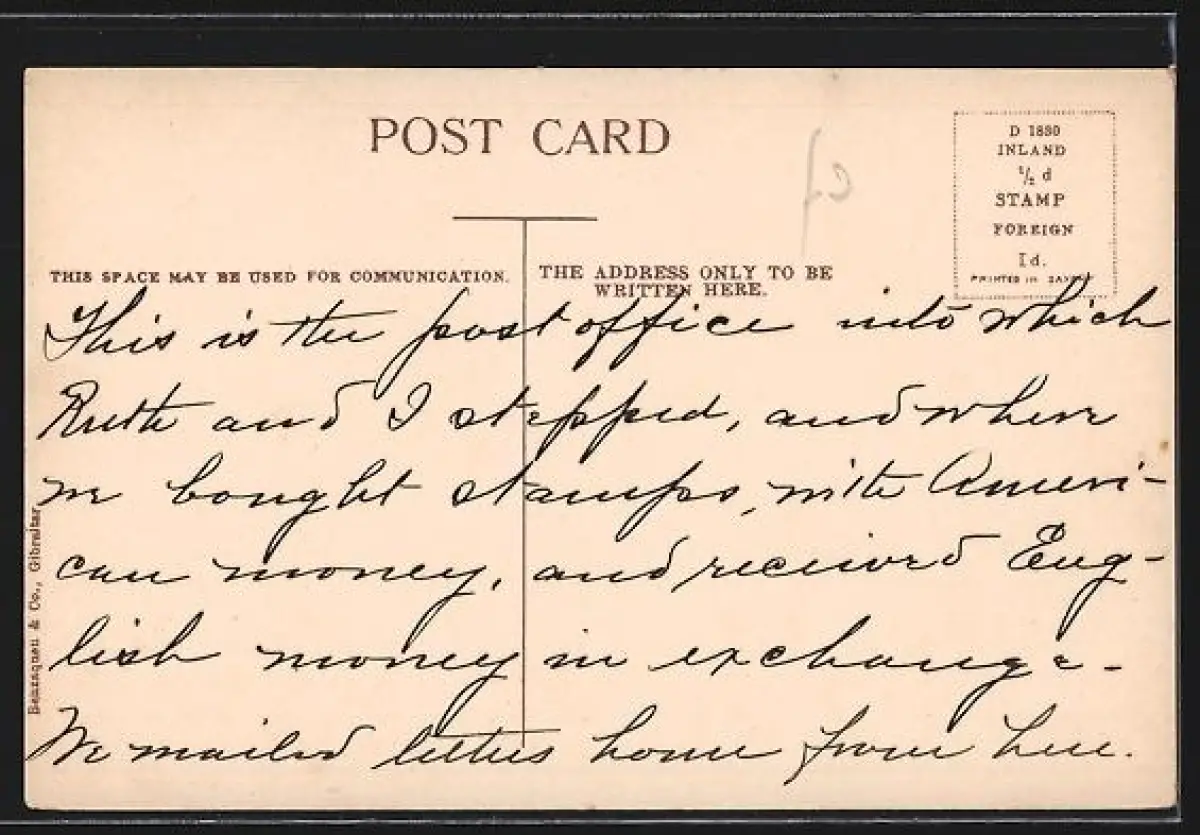 POST CARD
D 1830
INLAND
½ d
STAMP
FOREIGN
1d.
PRINTED IN SAXONY
THIS SPACE MAY BE USED FOR COMMUNICATION.
THE ADDRESS ONLY TO BE
WRITTEN HERE.
This is the post office into which
Ruth and I stepped, and where
we bought stamps, with Ameri-
can money, and received Eng-
lish money in exchange -
We mailed letters home from here.
& Co., Gibraltar